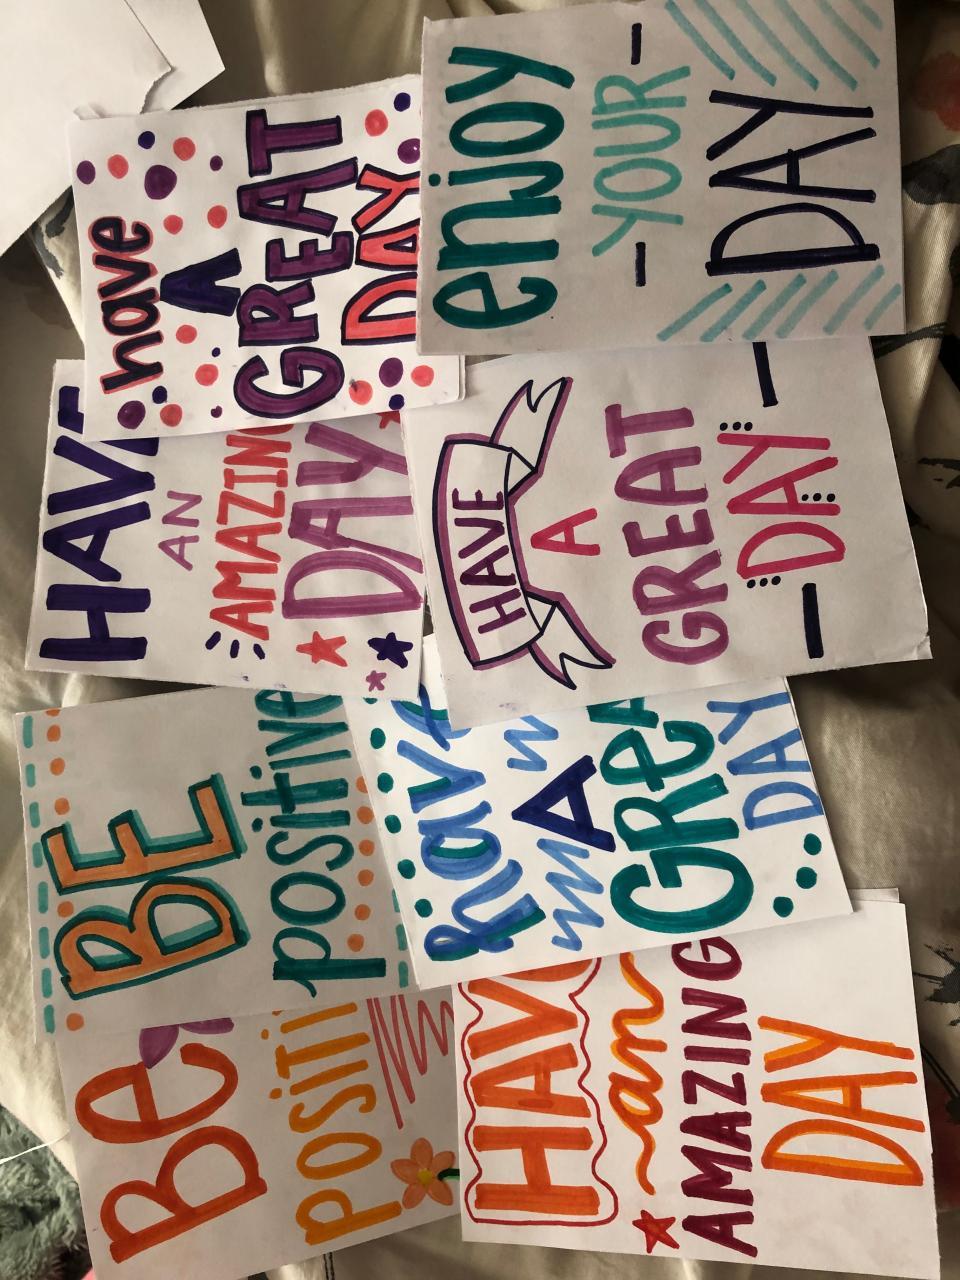 have
A
GREAT
DAY
enjoy
- YOUR -
DAY
HAVE
AN
AMAZING
DAY
HAVE
A
GREAT
- DAY -
BE
positive
have
A
GREAT
DAY
Be
positi
HAVE
an
AMAZING
DAY